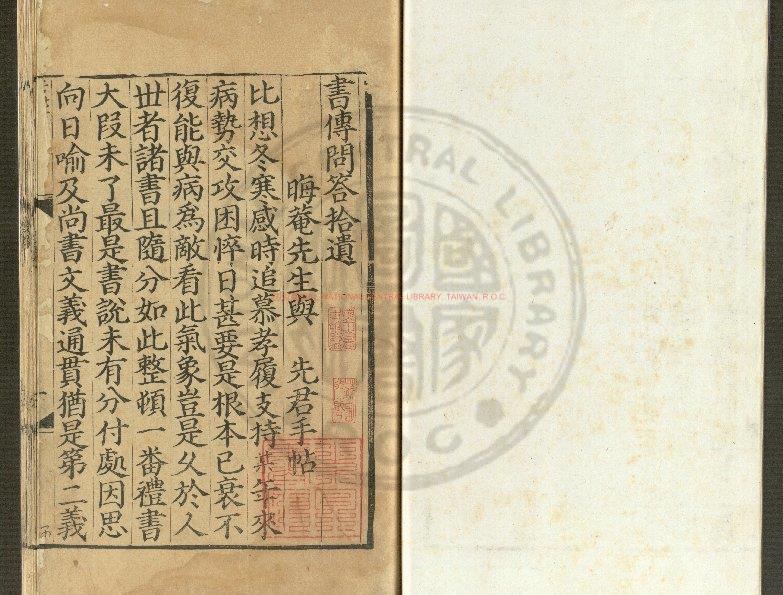 書傳問答拾遺
晦菴先生與 先君手帖
比想冬寒感時追慕孝履支持某年來
病勢交攻困悴日甚要是根本已衰不
復能與病爲敵看此氣象豈是乆於人
丗者諸書且隨分如此整頓一番禮書
大叚未了最是書說未有分付處因思
向日喻及尚書文義通貫猶是第二義
NATIONAL CENTRAL LIBRARY, TAIWAN, R.O.C
CENTRAL LIBRARY